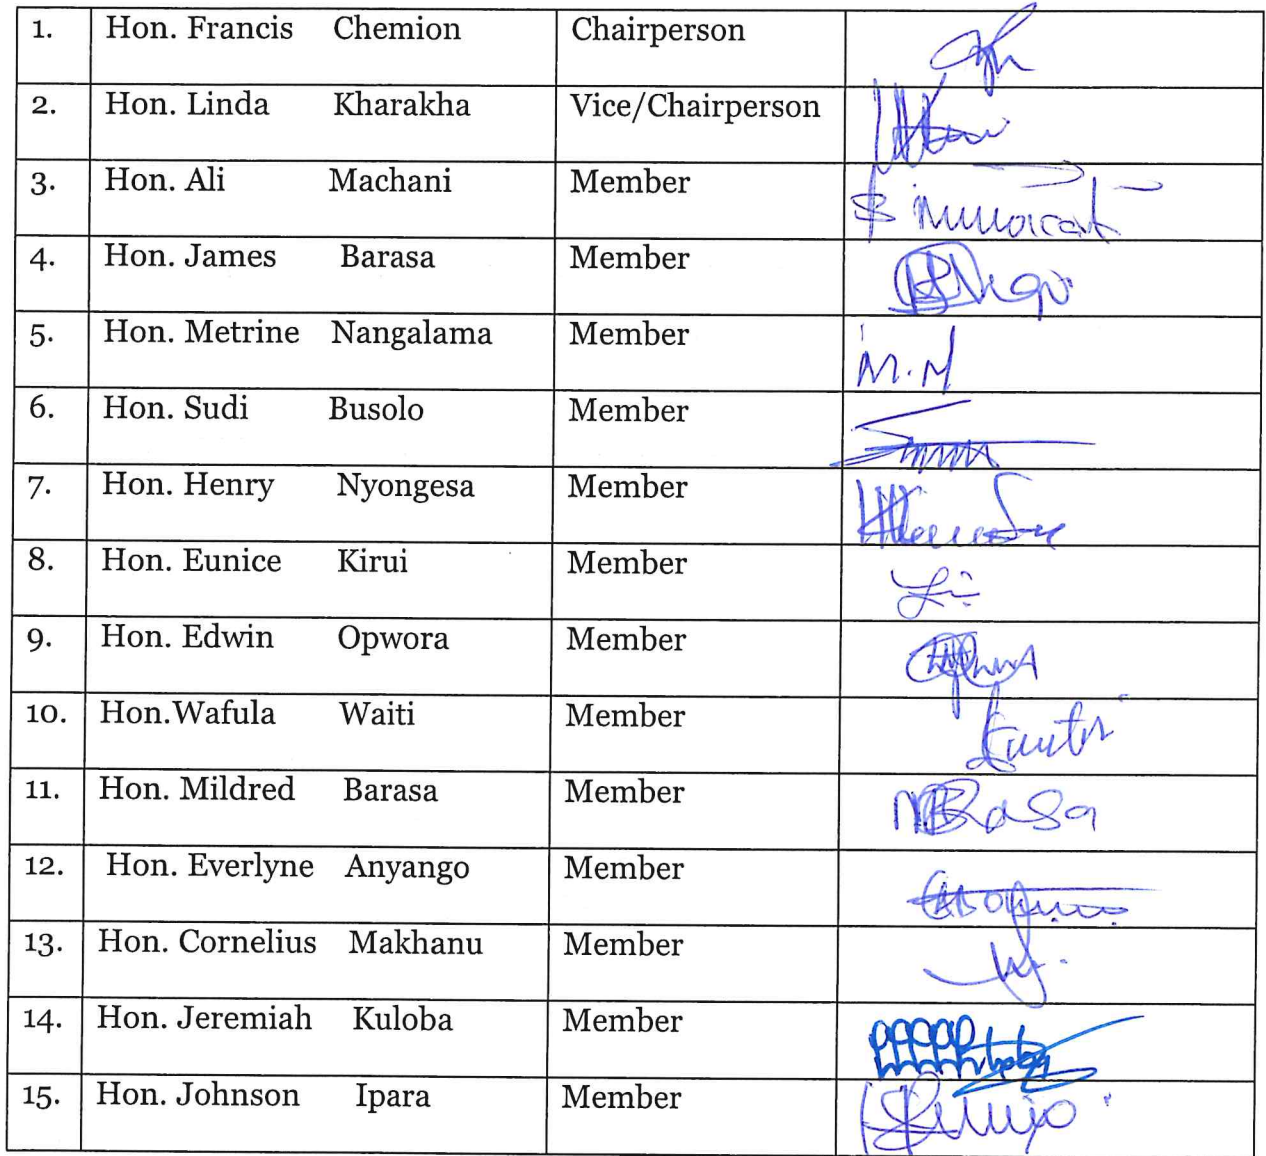 1. Hon. Francis Chemion Chairperson
2. Hon. Linda Kharakha Vice/Chairperson
3. Hon. Ali Machani Member
4. Hon. James Barasa Member
5. Hon. Metrine Nangalama Member M.M
6. Hon. Sudi Busolo Member
7. Hon. Henry Nyongesa Member
8. Hon. Eunice Kirui Member
9. Hon. Edwin Opwora Member
10. Hon.Wafula Waiti Member
11. Hon. Mildred Barasa Member
12. Hon. Everlyne Anyango Member
13. Hon. Cornelius Makhanu Member
14. Hon. Jeremiah Kuloba Member
15. Hon. Johnson Ipara Member